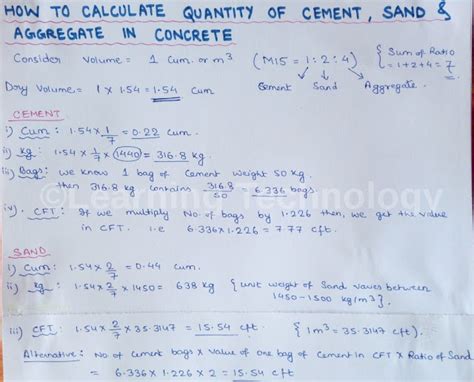 HOW TO CALCULATE QUANTITY OF CEMENT, SAND &
AGGREGATE IN CONCRETE
Consider Volume = 1 Cum. or m³ (M15 = 1:2:4) { Sum of Ratio
= 1+2+4 = 7
Dry Volume = 1 X 1.54 = 1.54 Cum Cement Sand Aggregate.
CEMENT
i) Cum: 1.54 x 1/7 = 0.22 cum.
ii) kg: 1.54 x 1/7 x 1440 = 316.8 kg.
iii) Bags: we know 1 bag of Cement weight 50 kg.
then 316.8 kg contains 316.8/50 = 6.336 bags.
©Learning Technology
iv). CFT: If we multiply No. of bags by 1.226 then, we get the value
in CFT. i.e 6.336 x 1.226 = 7.77 cft.
SAND
i) Cum: 1.54 x 2/7 = 0.44 cum.
ii) kg: 1.54 x 2/7 x 1450 = 638 kg { unit weight of Sand varies between
1450-1500 kg/m³ }.
iii) CFT: 1.54 x 2/7 x 35.3147 = 15.54 cft. { 1m³ = 35.3147 cft }.
Alternative: No of Cement bags x Value of one bag of Cement in CFT x Ratio of Sand
= 6.336 x 1.226 x 2 = 15.54 cft